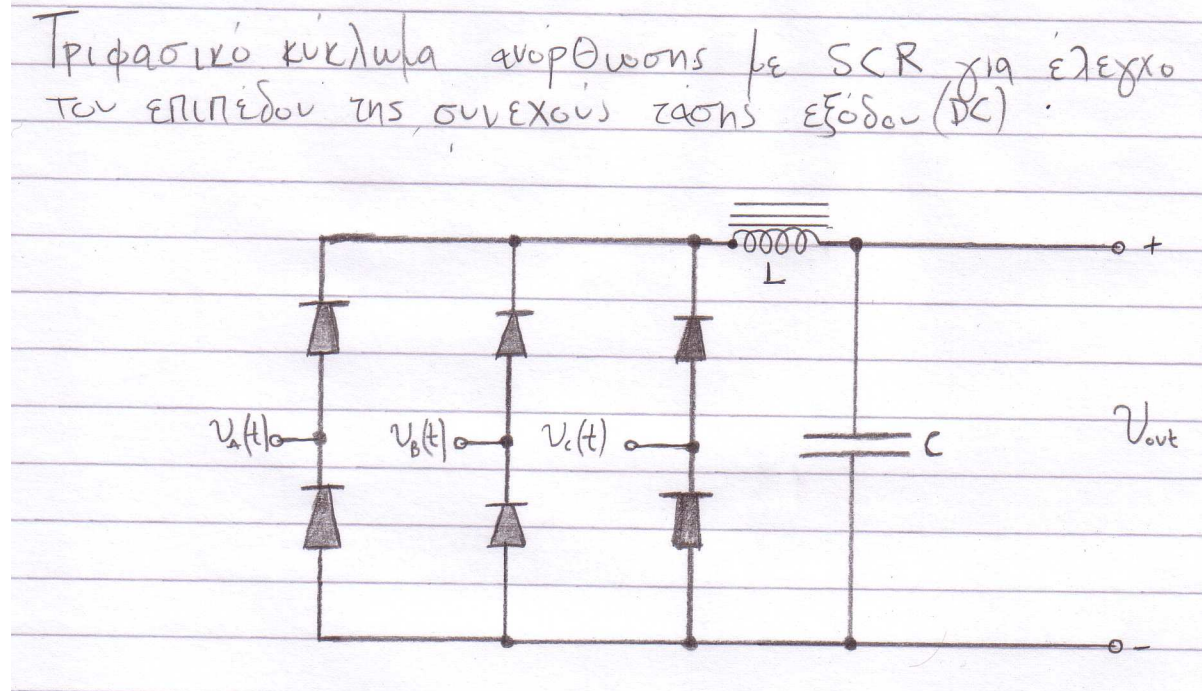 Τριφασικό κύκλωμα ανόρθωσης με SCR για έλεγχο
του επιπέδου της συνεχούς τάσης εξόδου (DC).
L
+
υA(t) υB(t) υc(t) C υout
-